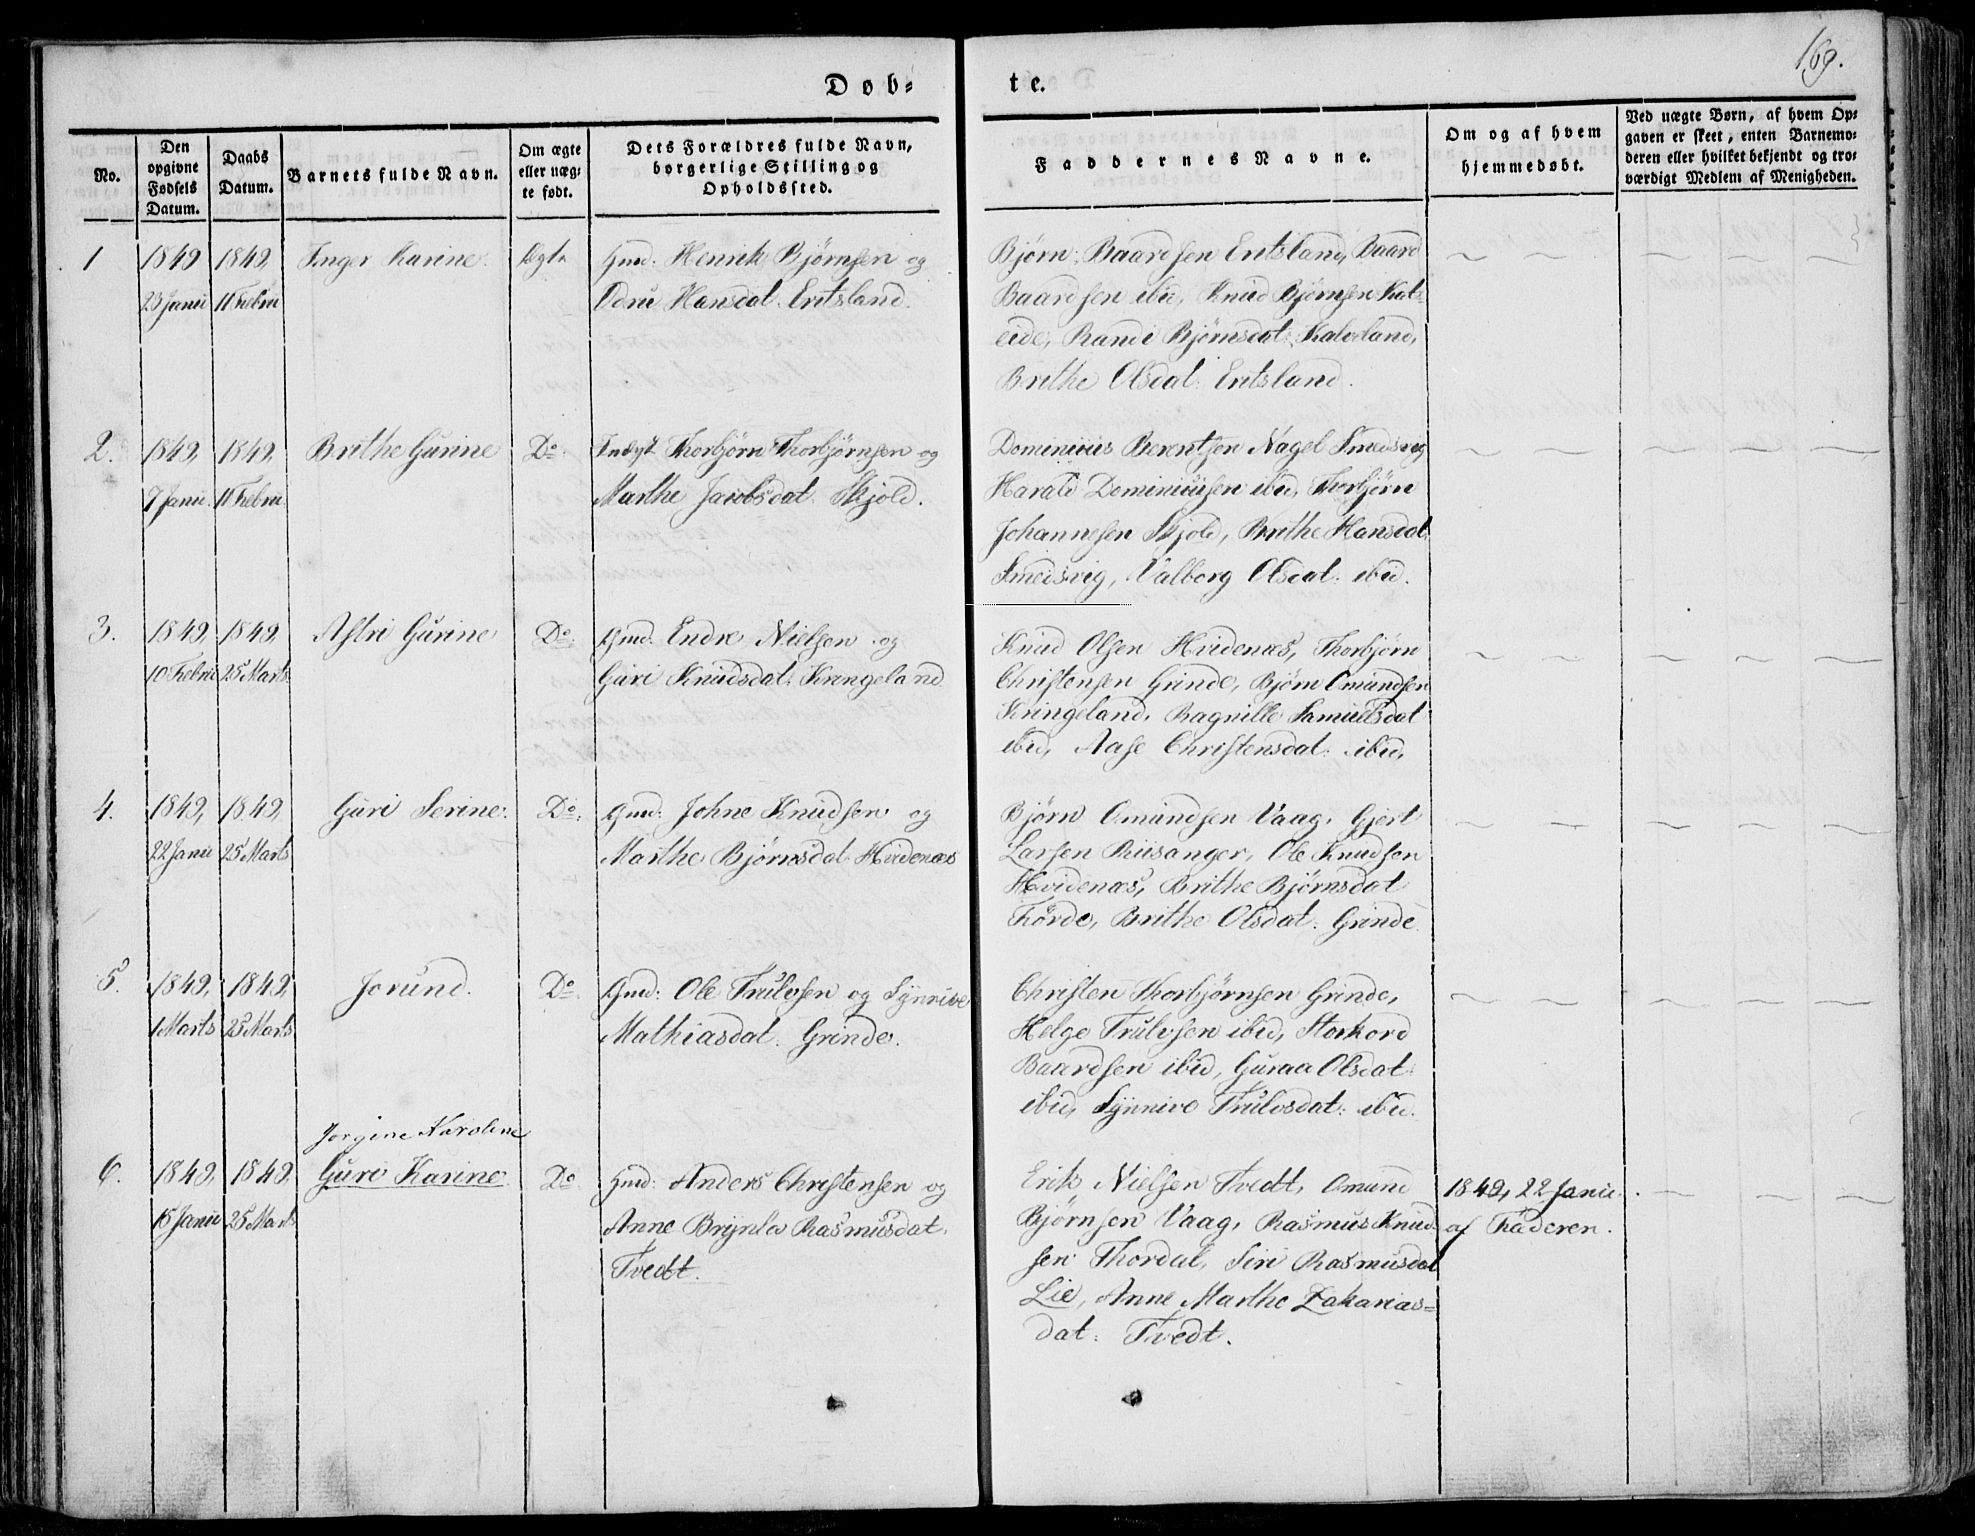 169.
Døb-
te.
No.
Den opgivne Fødsels Datum.
Daabs Datum.
Barnets fulde Navn.
Om ægte eller uægte født.
Dets Forældres fulde Navn, borgerlige Stilling og Opholdssted.
Faddernes Navne.
Om og af hvem hjemmedøbt.
Ved uægte Børn, af hvem Opgaven er skeet, enten Barnemoderen eller hvilket bekjendt og troværdigt Medlem af Menigheden.
1
1849 23 Janu
1849, 11 Febru
Inger Karine.
Ægte
Gmd: Henrik Bjørnsen og
Odru Hansdat. Eritsland.
Bjørn Baardsen Eritsland, Baard
Baardsen ibid, Knud Bjørnsen Kal-
eide, Randi Bjørnsdat: Kalvland,
Brithe Olsdat: Eritsland.
2.
1849, 7 Janu.
1849, 11 Febru
Brithe Gurine
Do
Indgst Thorbjørn Thorbjørnsen og
Marthe Jacobsdat. Skjold.
Dominicus Berentsen Nagel Smedsvig
Harald Dominicusen ibid, Thorbjørn
Johannesen Skjold, Brithe Hansdat
Smedsvig, Valborg Olsdat: ibid.
3.
1849, 10 Febru
1849, 25 Marts
Astri Gurine
Do
Gmd: Endre Nielsen og
Guri Knudsdat: Kringeland
Knud Olsen Hvidenæs, Thorbjørn
Christensen Grinde, Bjørn Omundsen
Kringeland, Ragnille Samuelsdat
ibid, Aase Christensdat: ibid,
4.
1849, 22 Janu
1849, 25 Marts
Guri Serine.
Do
Gmd: Johne Knudsen og
Marthe Bjørnsdat Hvidenæs
Bjørn Omundsen Vaag, Gjert
Larsen Riisanger, Ole Knudsen
Hvidenæs, Brithe Bjørnsdat
Førde, Brithe Olsdat: Grinde
5.
1849, 1 Marts
1849, 25 Marts
Jorund.
Do
Gmd: Ole Trulvsen og Synnive
Mathiasdat. Grinde.
Christen Thorbjørnsen Grinde,
Helge Trulvsen ibid, Storkord
Baardsen ibid, Guraa Olsdat:
ibid, Synnive Trulvsdat: ibid.
6.
1849, 15 Janu
1849, 25 Marts
Jorgine Karoline
Guri Karine.
Do
Gmd: Anders Christensen og
Anne Brynla Rasmusdat,
Tvedt.
Erik Nielsen Tvedt, Omund
Bjørnsen Vaag, Rasmus Knud-
sen Thordal, Siri Rasmusdat
Lie, Anne Marthe Zakarias-
dat: Tvedt.
1849, 22 Janu.
af Faderen.